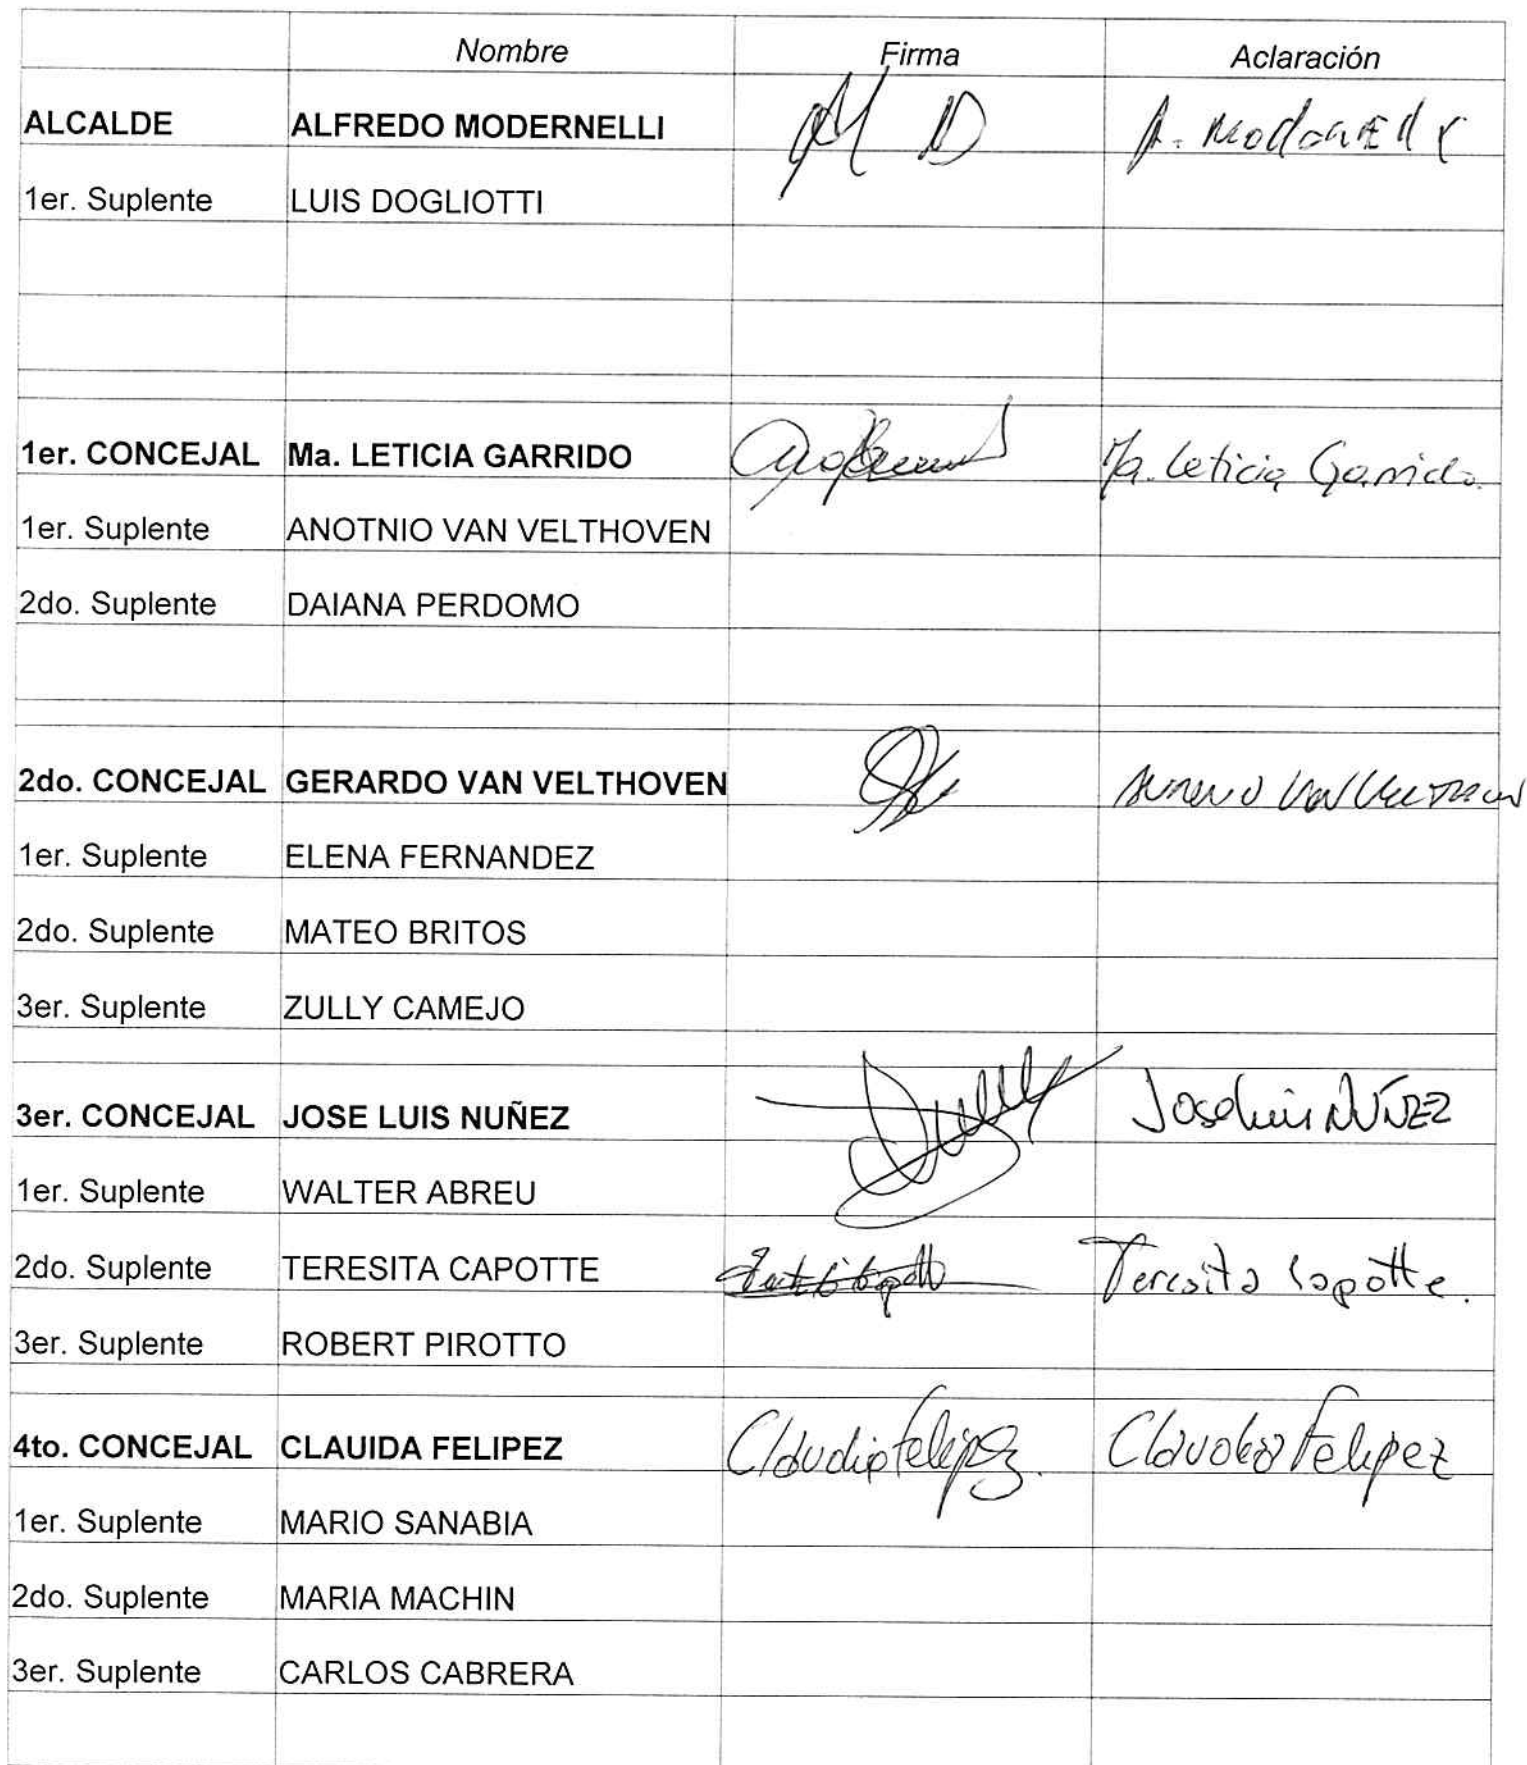 Nombre Firma Aclaración
ALCALDE ALFREDO MODERNELLI A. Modernelli
1er. Suplente LUIS DOGLIOTTI
1er. CONCEJAL Ma. LETICIA GARRIDO Ma. Leticia Garrido.
1er. Suplente ANOTNIO VAN VELTHOVEN
2do. Suplente DAIANA PERDOMO
2do. CONCEJAL GERARDO VAN VELTHOVEN
1er. Suplente ELENA FERNANDEZ
2do. Suplente MATEO BRITOS
3er. Suplente ZULLY CAMEJO
3er. CONCEJAL JOSE LUIS NUÑEZ Jose Luis NÚÑEZ
1er. Suplente WALTER ABREU
2do. Suplente TERESITA CAPOTTE Teresita Capotte.
3er. Suplente ROBERT PIROTTO
4to. CONCEJAL CLAUIDA FELIPEZ Claudia Felipez. Claudia Felipez
1er. Suplente MARIO SANABIA
2do. Suplente MARIA MACHIN
3er. Suplente CARLOS CABRERA